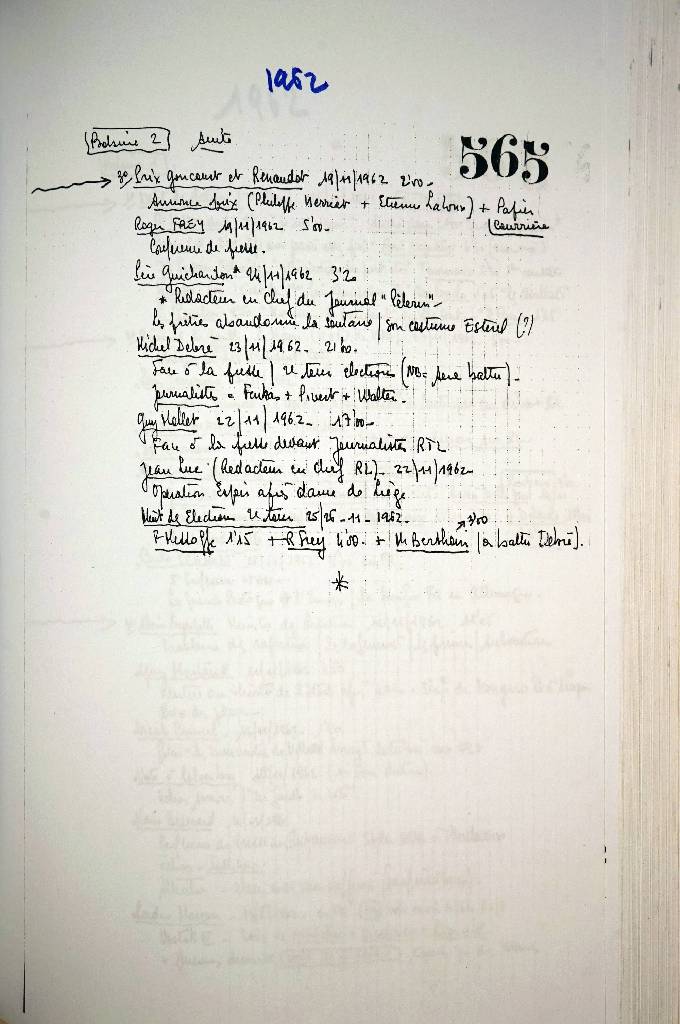 1962
Bobine 2 Suite
565
3° Prix Goncourt et Renaudot 19/11/1962 2'00 -
Annonce prix (Philippe Hériat + Etienne Lalou) + Papier
Roger FREY 19/11/1962 5'00 - Courrière
Conférence de presse.
Père Guichardon* 24/11/1962 3'20
* Rédacteur en Chef du Journal "Pèlerin" -
Les prêtres abandonne la soutane / son costume Esterel (?)
Michel Debré 23/11/1962 - 21'00.
Face à la presse / 2e tour élections (NB= sera battu) -
Journalistes = Farkas + Pivert + Walter -
Guy Mollet 22/11/1962 - 17'00 -
Face à la presse devant Journalistes RTL
Jean Luc (Rédacteur en Chef RL) - 22/11/1962 -
Opération Espoir après drame de Liège
Nuit des Elections 2e tour 25/26-11-1962 -
1'15 + R Frey 4'00 - + Mr Berthoin (a battu Debré).
3'00
*